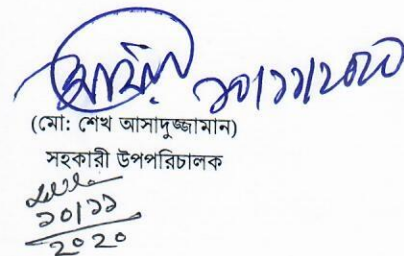 ১০/১১/২০২০
(মো: শেখ আসাদুজ্জামান)
সহকারী উপপরিচালক
১০/১১
২০২০